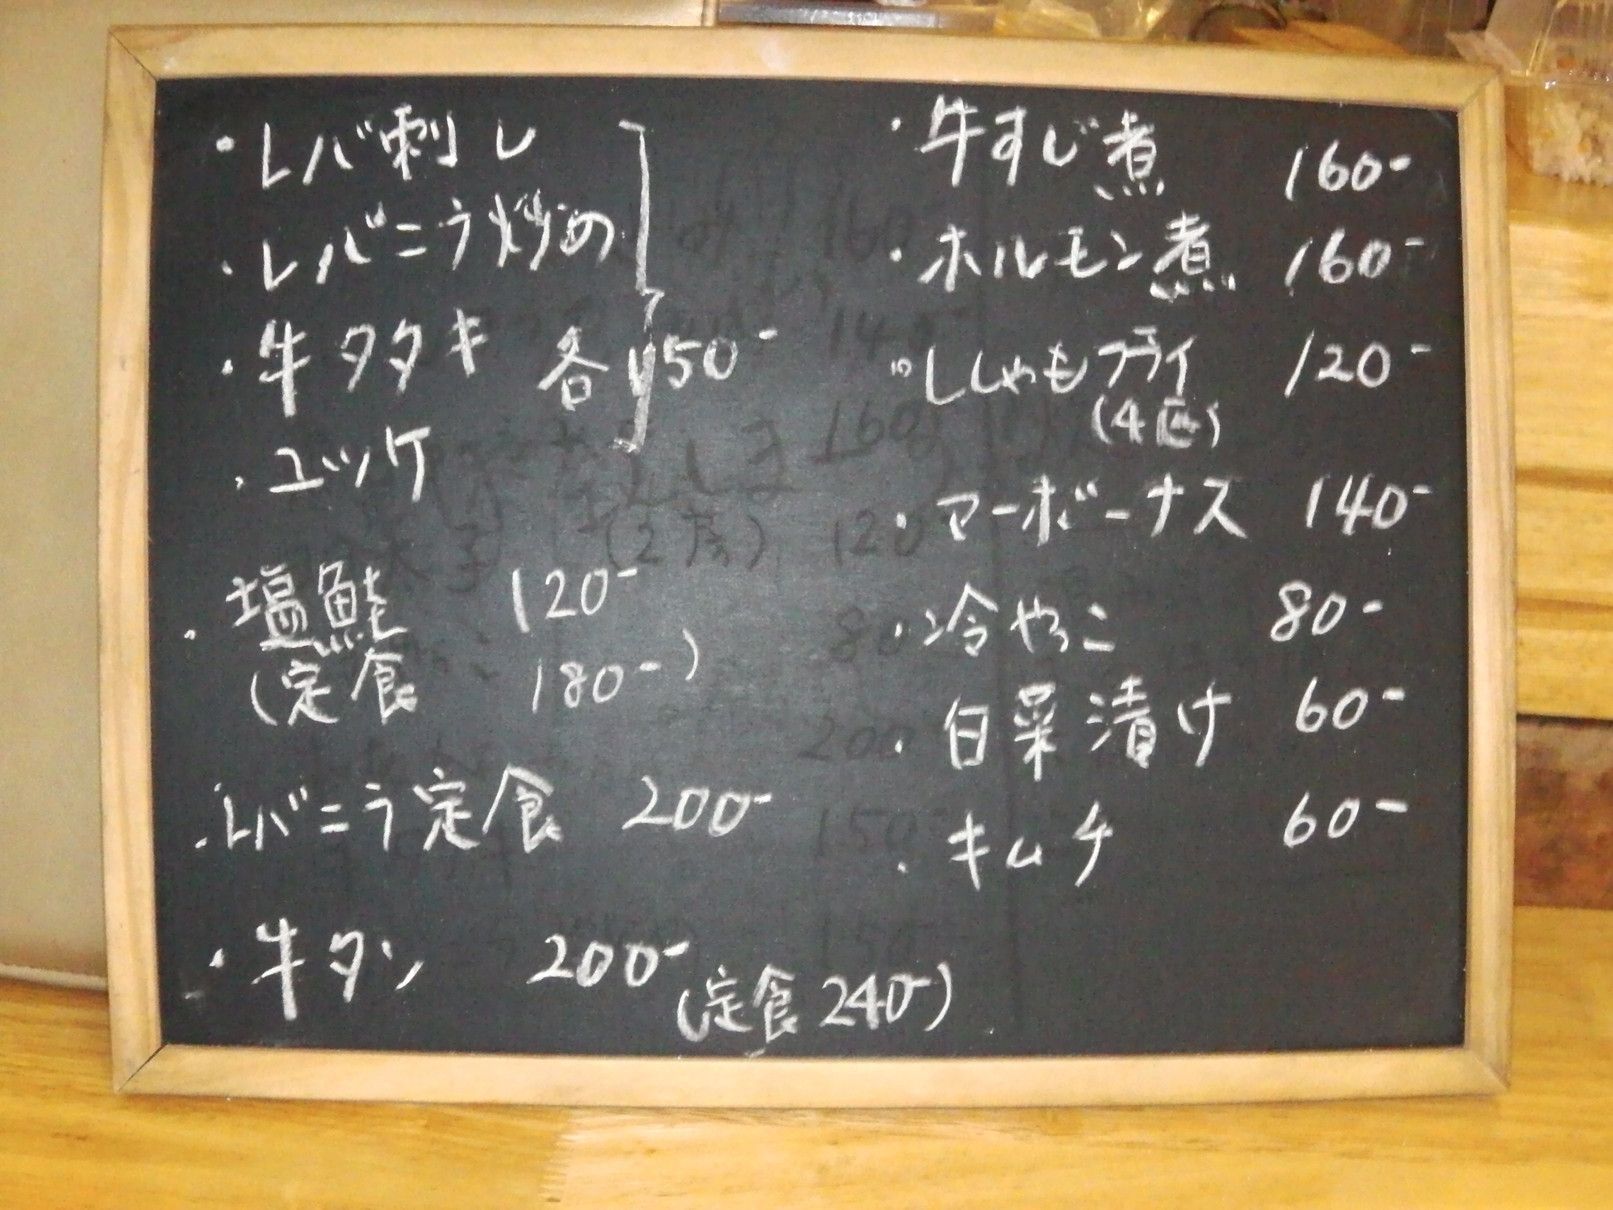 ・レバ刺し
・レバニラ炒め
・牛タタキ 各150-
・ユッケ
・塩鮭 120-
(定食 180-)
・レバニラ定食 200-
・牛タン 200-
(定食 240-)
・牛すじ煮 160-
・ホルモン煮 160-
・ししゃもフライ 120-
(4匹)
・マーボーナス 140-
・冷やっこ 80-
・白菜漬け 60-
・キムチ 60-